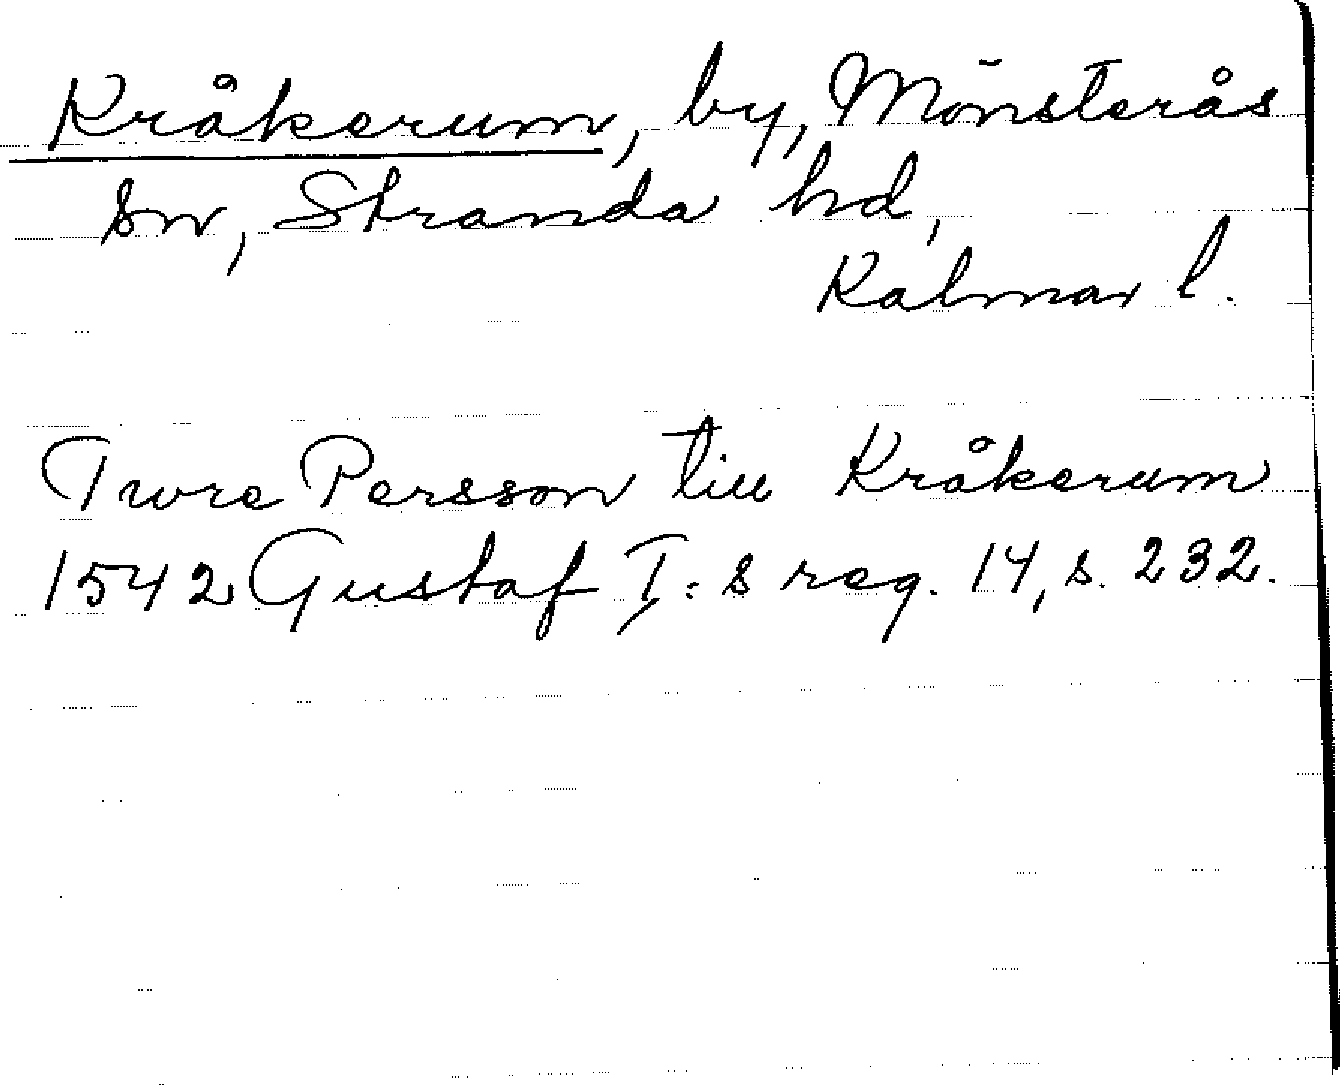 Kråkerum, by, Mönsterås
sn, Stranda hd,
Kalmar l.
Twre Persson till Kråkerum
1542 Gustaf I:s reg. 14, s. 232.